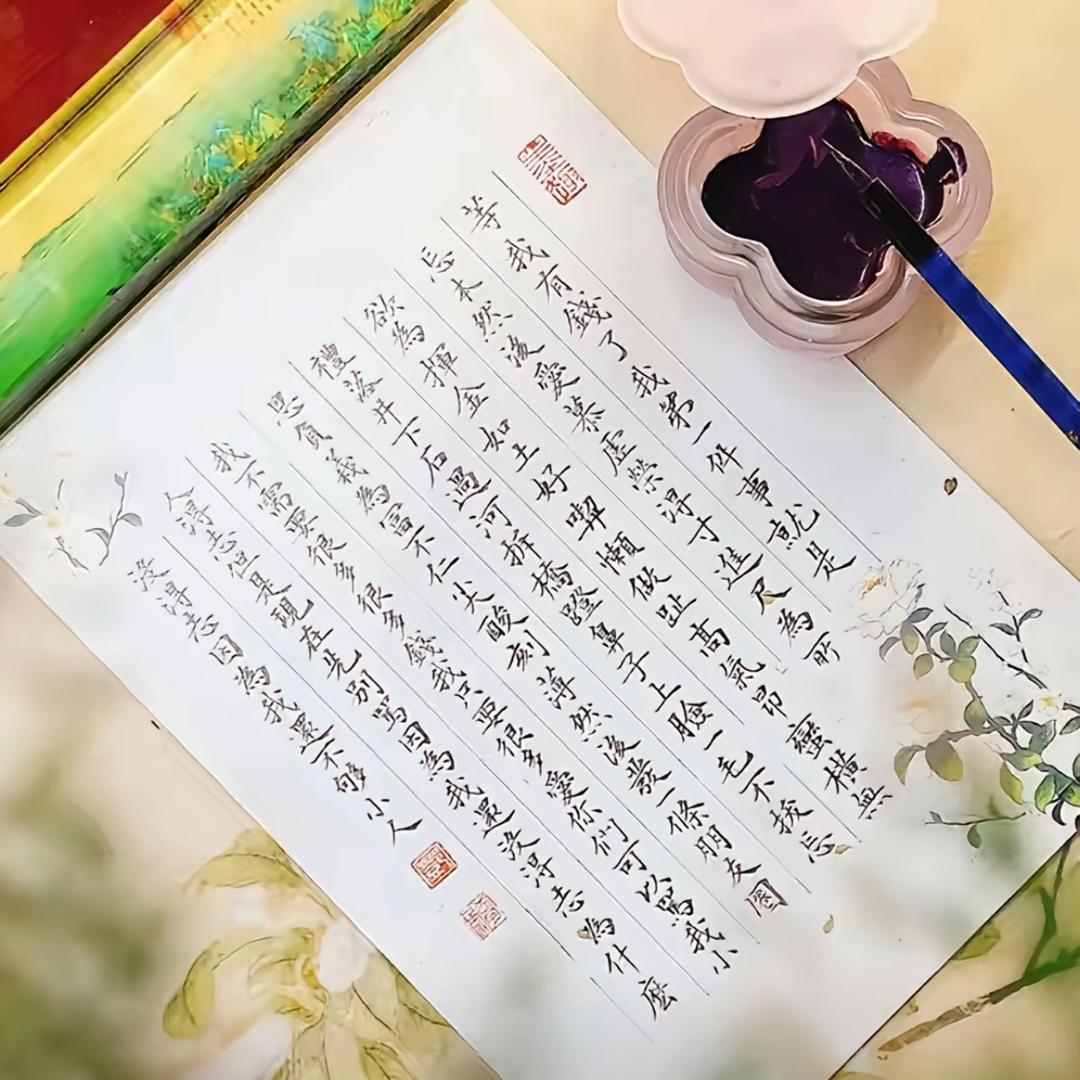 等我有錢了我第一件事就是
忘本然後愛慕虛榮得寸進尺為所
欲為揮金如土好喫懶做趾高氣昂蠻橫無
禮落井下石過河拆橋蹬鼻子上臉一毛不拔忘
恩負義為富不仁尖酸刻薄然後發一條朋友圈
我不需要很多很多錢我只要很多愛你們可以罵我小
人得志但是現在先別罵因為我還沒得志為什麼
沒得志因為我還不够小人